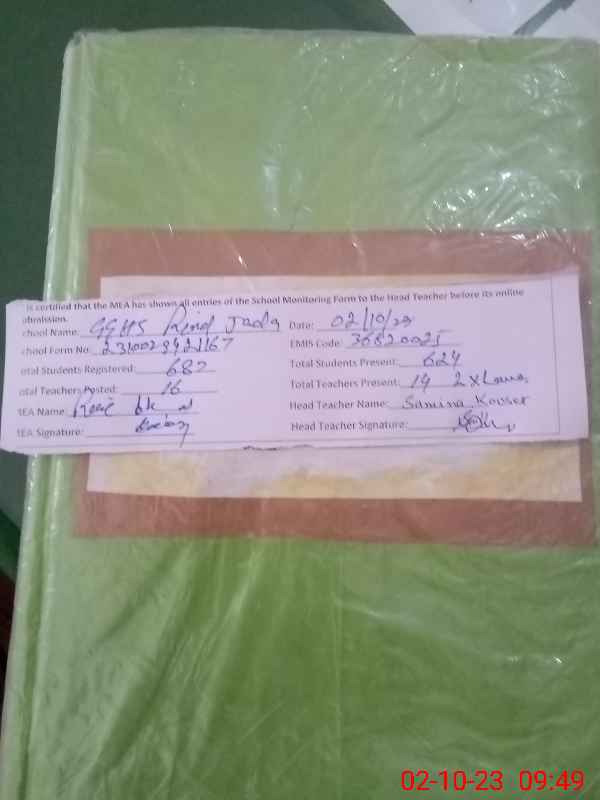 is certified that the MEA has shown all entries of the School Monitoring Form to the Head Teacher before its online
ubmission.
chool Name: GGHS Rind Jada Date: 02/10/23
chool Form No: EMIS Code: 36820025
otal Students Registered: 682 Total Students Present: 624
otal Teachers Posted: 16 Total Teachers Present: 14 2x
MEA Name: Head Teacher Name: Samina Kouser
MEA Signature: Head Teacher Signature:
02-10-23 09:49